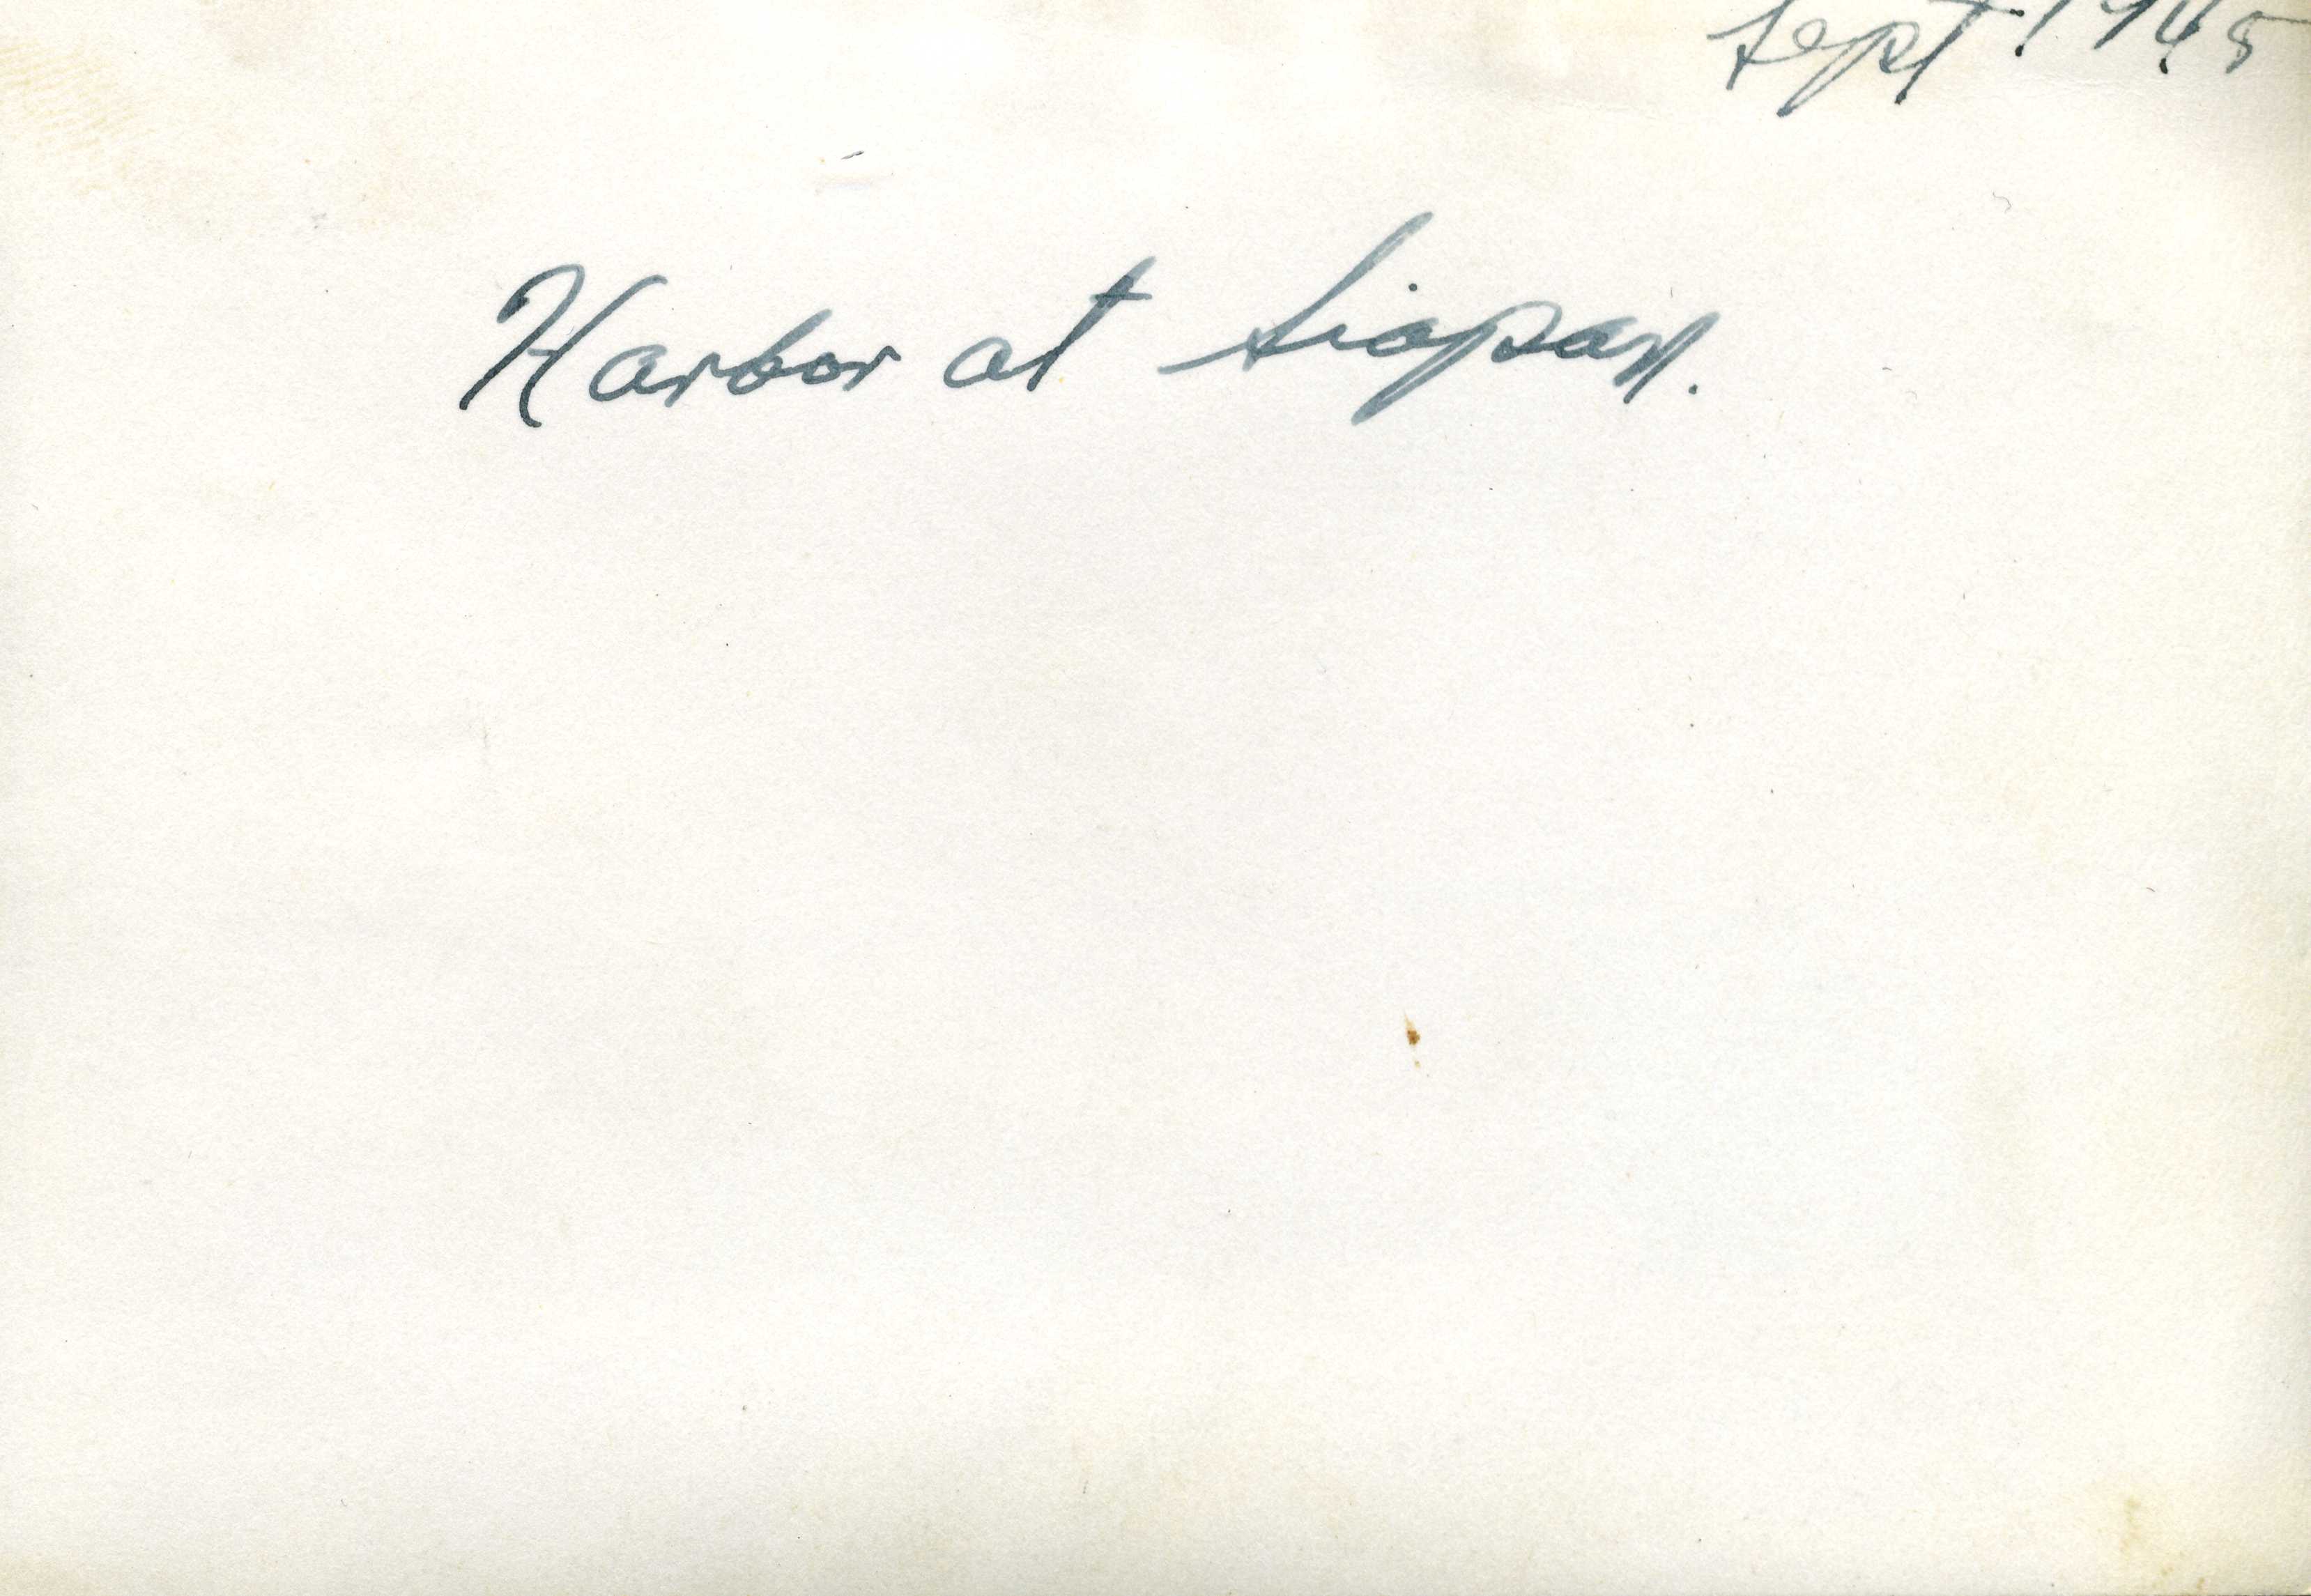 Sept. 1945
Harbor at Siapan.